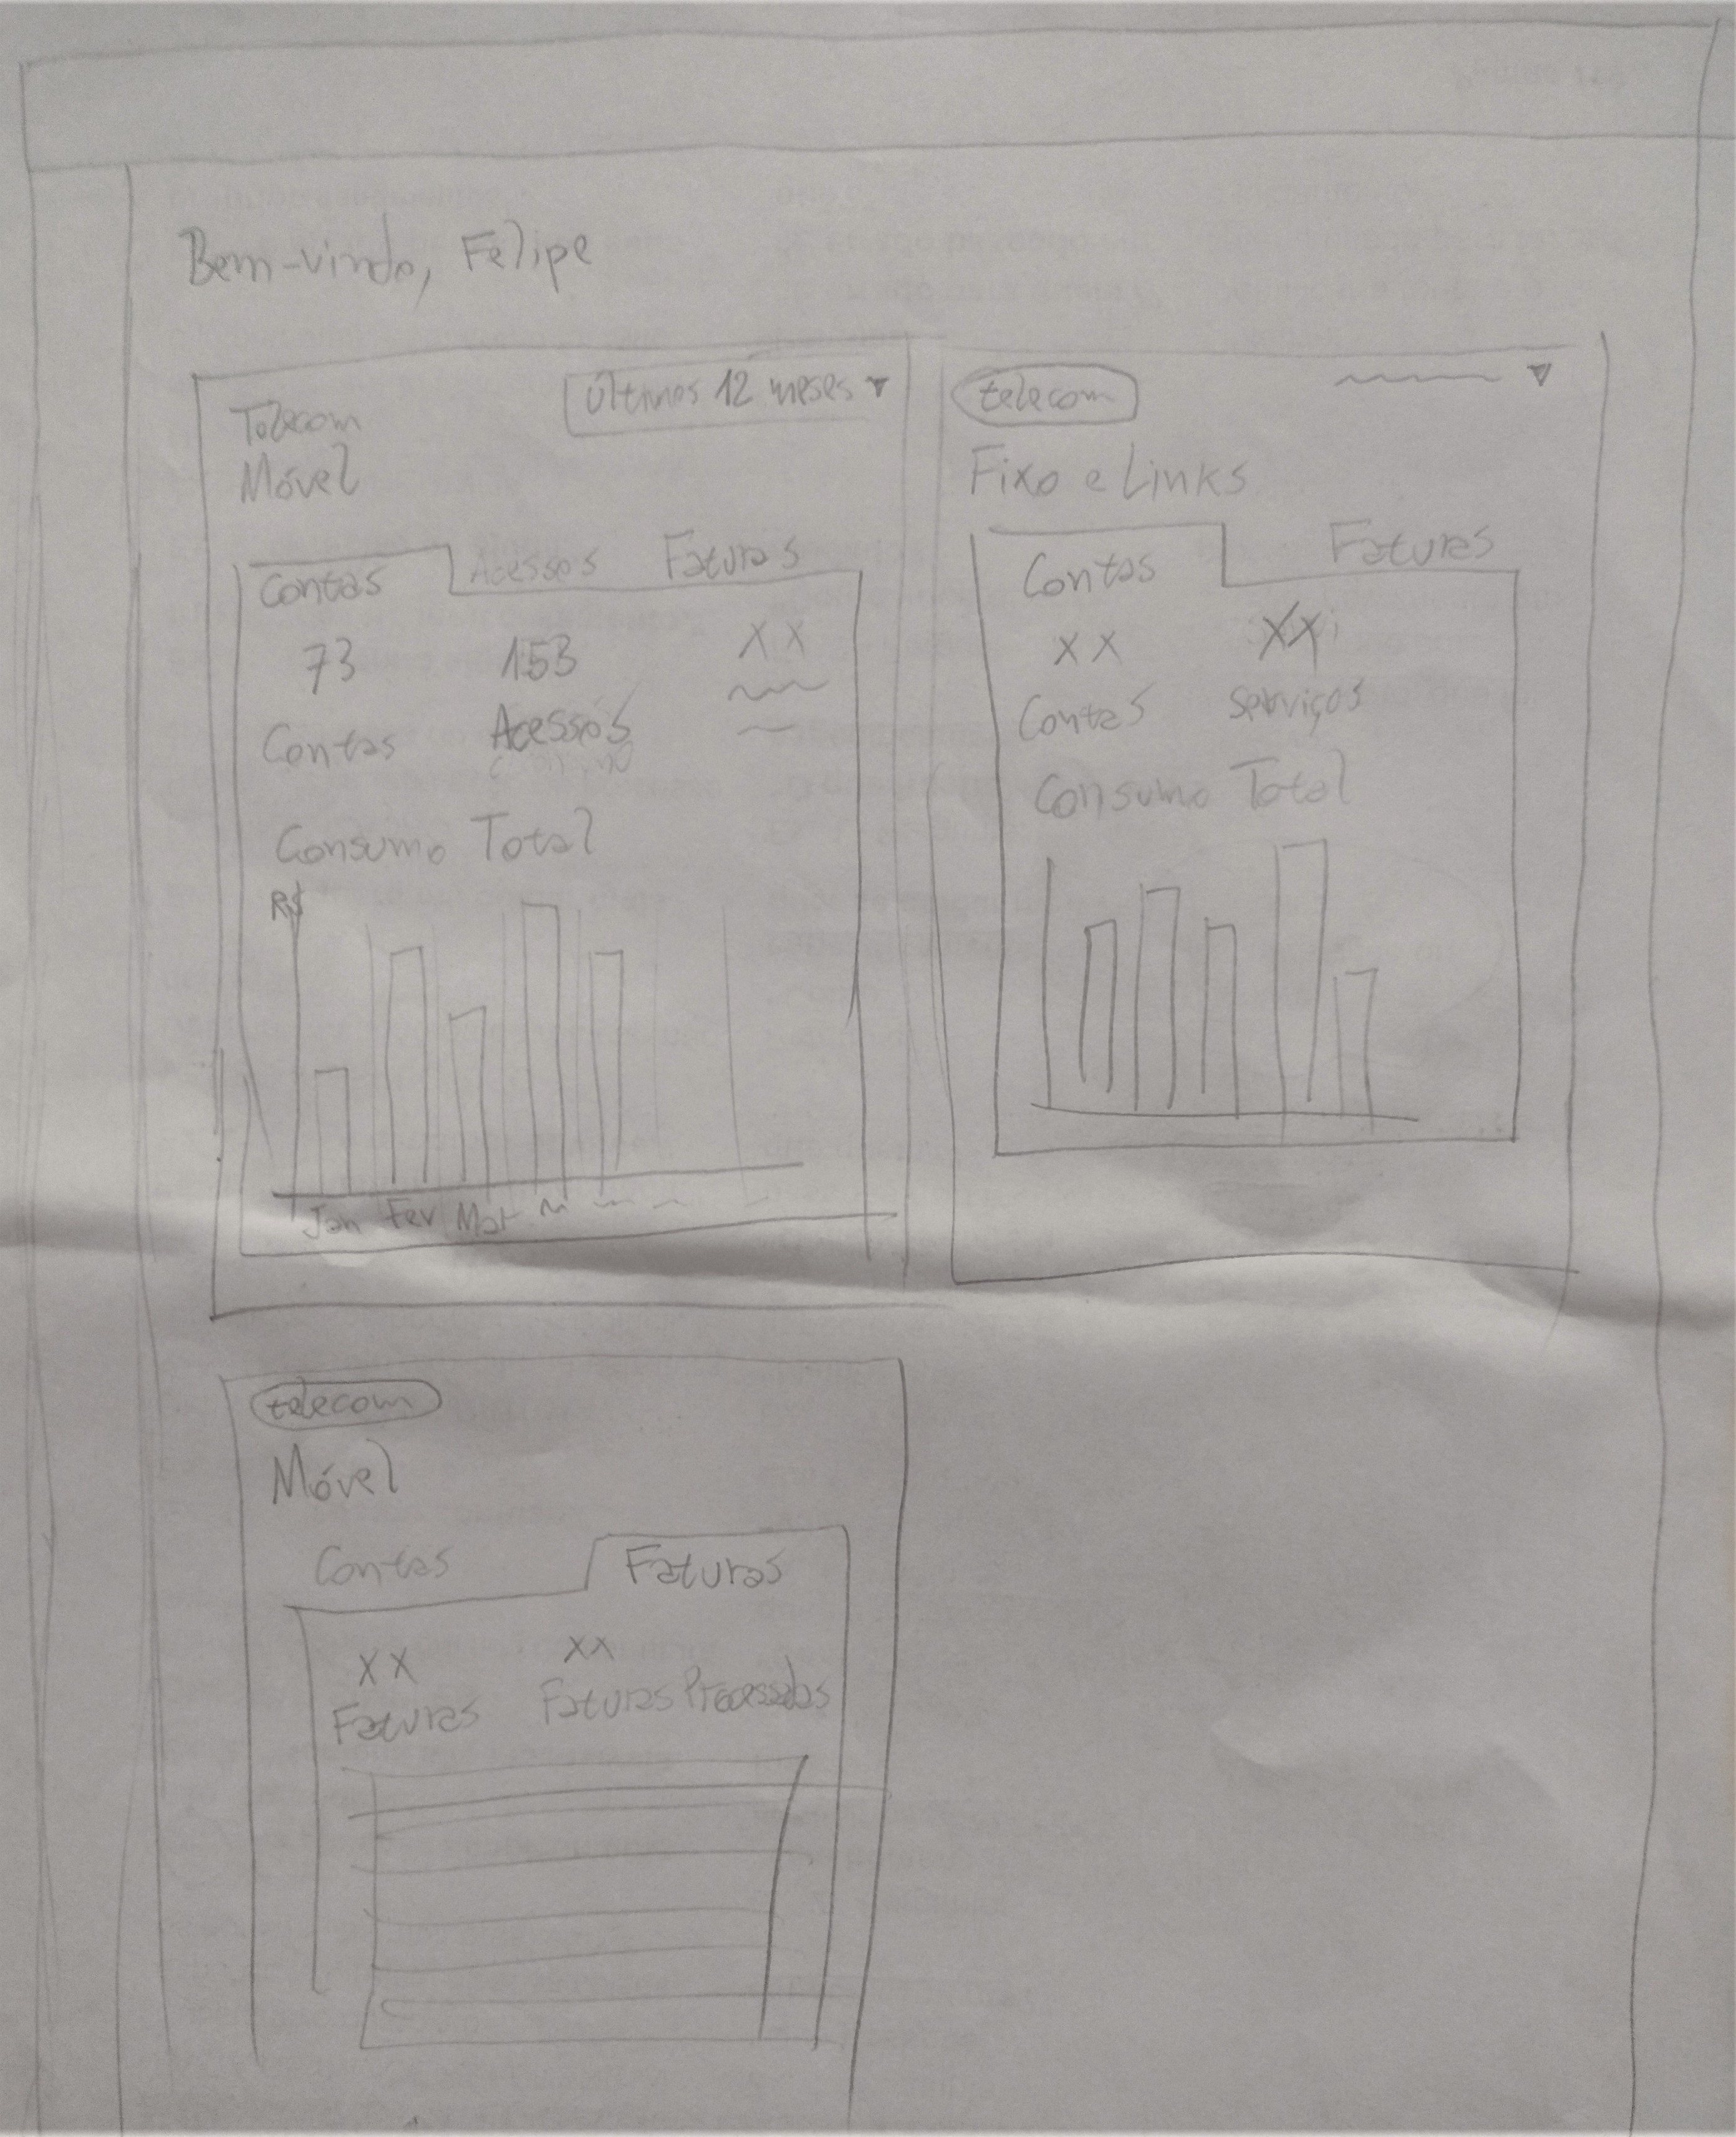 Bem-vindo, Felipe
Telecom
Móvel
Últimos 12 meses ▼
Contas Acessos Faturas
73 153 XX
Contas Acessos
Consumo Total
R$
Jan Fev Mar
telecom
Fixo e Links
Contas Faturas
XX XX
Contas serviços
Consumo Total
telecom
Móvel
Contas Faturas
XX XX
Faturas Faturas Processadas